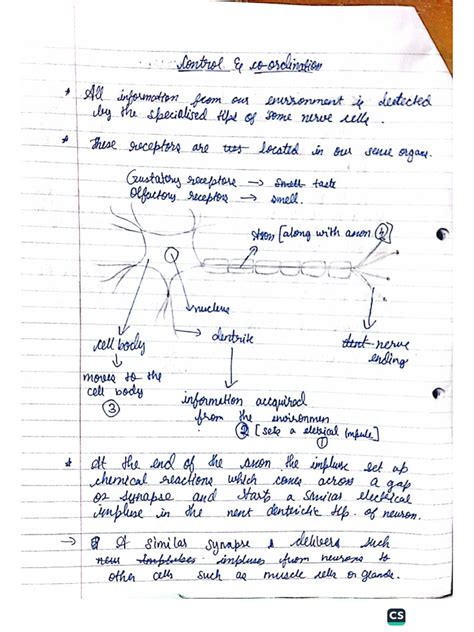 Control & co-ordination
* All information from our environment is detected
by the specialised tips of some nerve cells.
* These receptors are located in our sense organs.
Gustatory receptors → smell taste
Olfactory receptors → smell.
[along with axon 4]
nucleus
cell body
dentrite
nerve
ending
moves to the
cell body
3
information acquired
from the environmen
2 [sets a eletrical impulse]
1
* At the end of the axon the implus set up
chemical reactions which comes across a gap
or synapse and starts a similar electrical
implus in the next dentrictic tip of neuron.
→ A similar synapse delivers such
impluses from neurons to
other cells such as muscle cells or glands.
CS